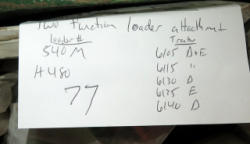 Two Function loader attachment
Loader # Tractor
540 M 6105 D+E
H480 6115 "
6130 D
77 6135 E
6140 D